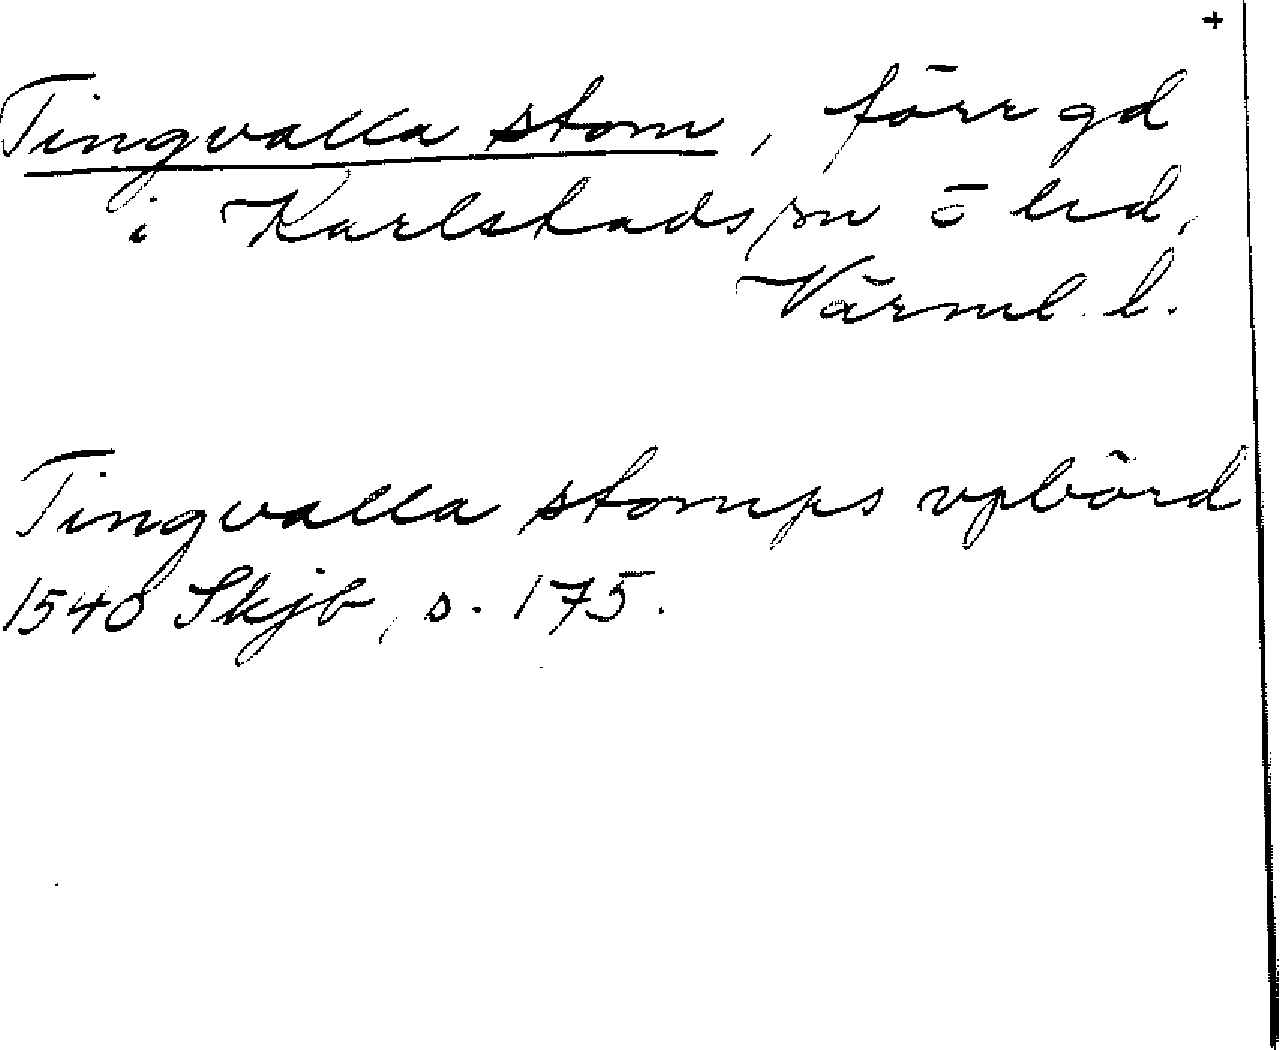 +
Tingvalla stom, förr gd
i Karlstads sn ö hd,
Värml. l.
Tingvalla stomps vpbörd
1540 Skjb, s. 175.